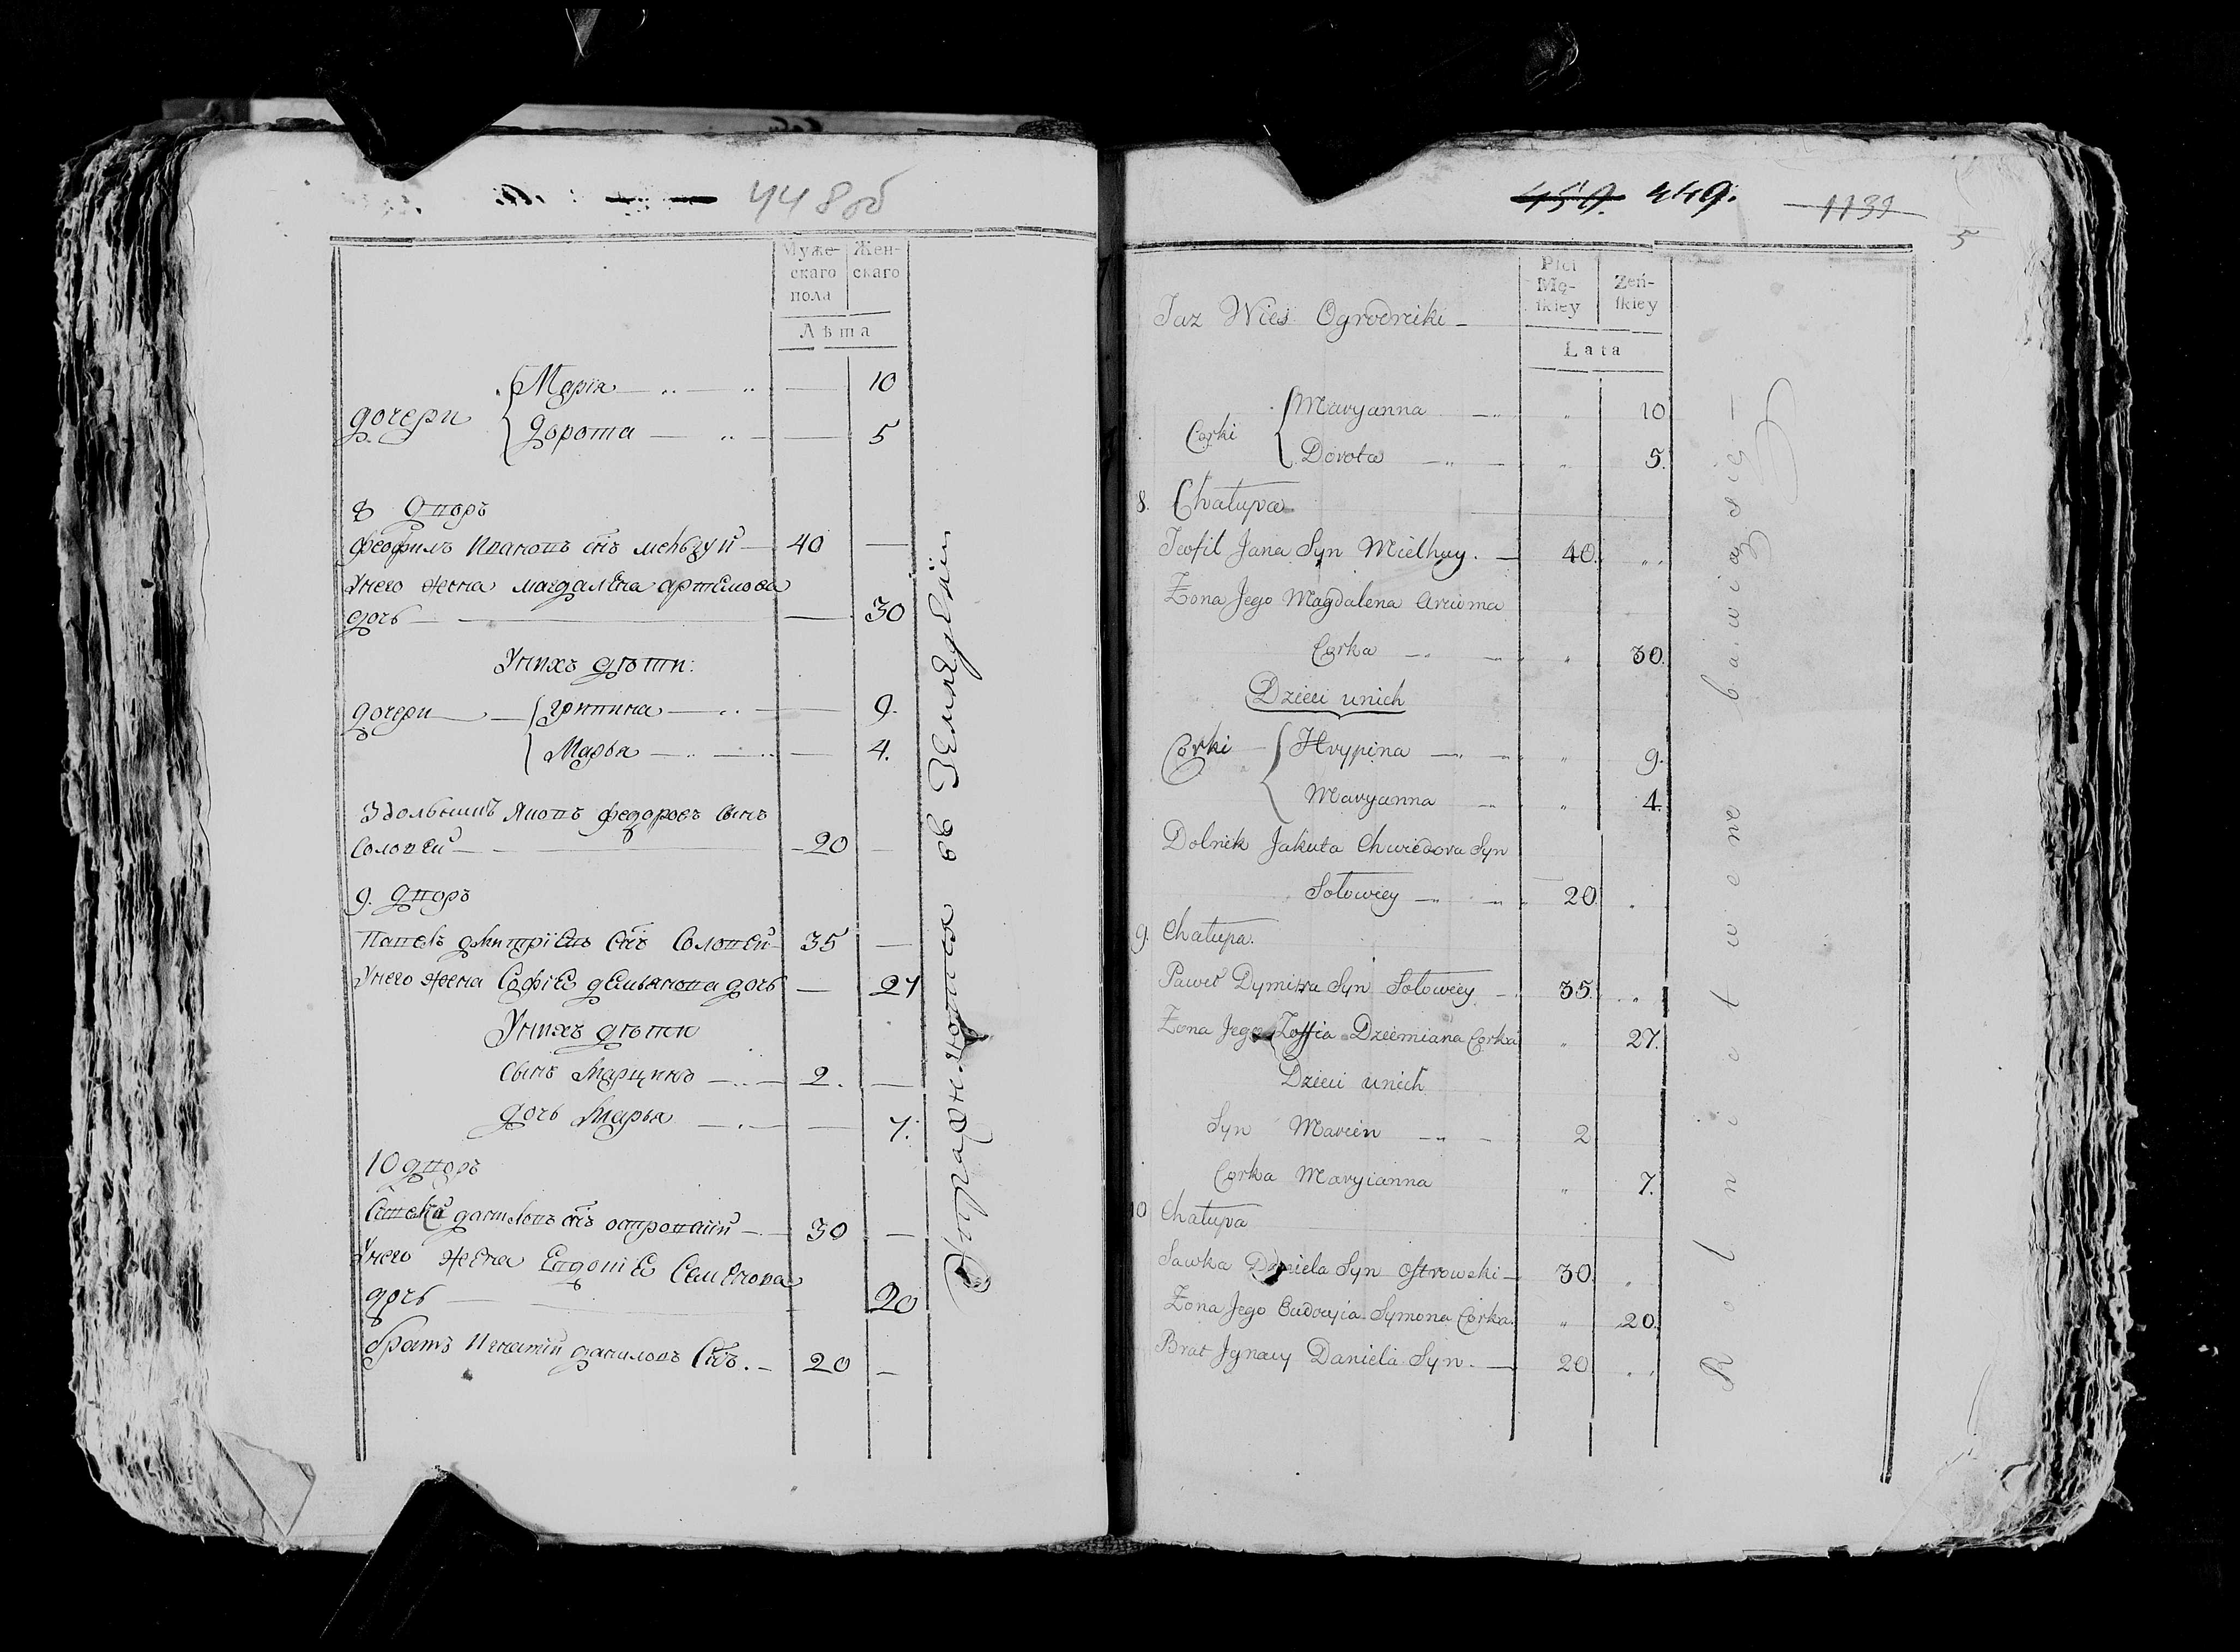 448об
Муже-
скаго
пола
Жен-
скаго
Лѣта
дочери
Марія 10
Дорота 5
8 Дворъ
Феофилъ Ивановъ снъ 40
Унего жена Магдалена Артемова
дочь 30
Унихъ дѣти:
дочери
Грипина 9.
Марья 4.
Федоровъ сынъ
Соловей 20
9. Дворъ
Павелъ Дмитріевъ снъ Соловей 35
Унего жена Софіе Демьянова дочь 27
Унихъ дѣти
сынъ Марцинъ 2.
дочь Марья 7.
10 Дворъ
Даниловъ снъ 30
Унего жена Евдокіе Семенова
дочь 20
братъ Игнатій Даниловъ снъ. 20
въ Земледѣліи
450. 449.
1139
5
Taz Wies Ogrodniki
Płci
Mę-
ſkiey
Żeń-
ſkiey
Lata
Corki
Maryanna 10
Dorota 5.
8. Chałupa
Teofil Jana Syn Mielhuy. 40.
Zona Jego Magdalena Arcioma
Corka 30.
Dzieci unich
Corki
Hrypina 9.
Maryanna 4.
Dolnik Jakuta Chwiedora Syn
Sołowiey 20.
9. Chałupa.
Paweł Dymitra Syn Sołowiey 35.
Zona Jego Zoffia Dziemiana Corka 27.
Dzieci unich
Syn Marcin 2
Corka Maryianna 7.
10 Chałupa
Sawka Daniela Syn Ostrowski 30.
Zona Jego Eudocyia Symona Corka. 20.
Brat Jgnacy Daniela Syn. 20
Rolnictwem bawią się